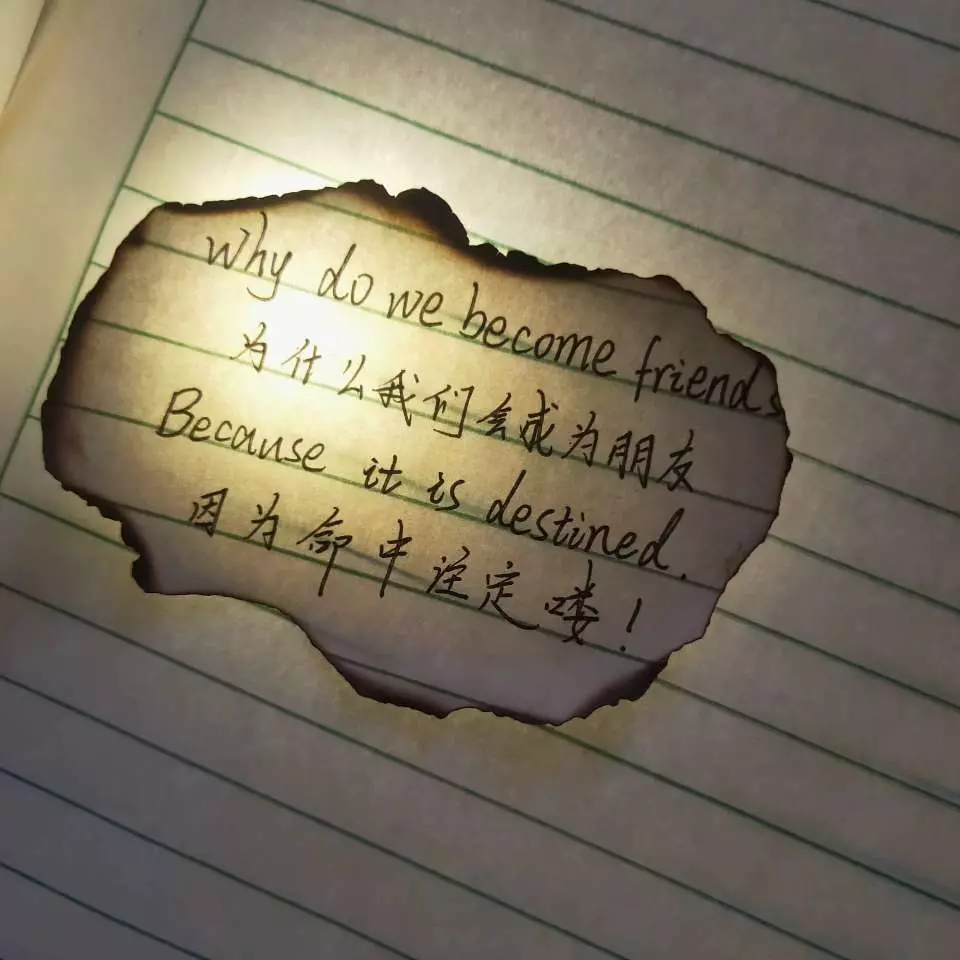 Why do we become friends
为什么我们会成为朋友
Because it is destined.
因为命中注定喽!